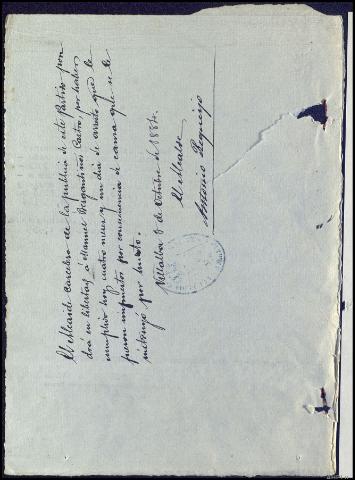 El Alcaide Carcelero de la publica de este Partido pon-
drá en libertad, á Manuel Bergantiños Castro, por haber
cumplido hoy cuatro meses y un dia de arresto que le
fueron impuestos por consecuencia de causa que se le
instruyó por hurto.
Villalba 8 de Octubre de 1887.
El Alcalde
Antonio Requeijo